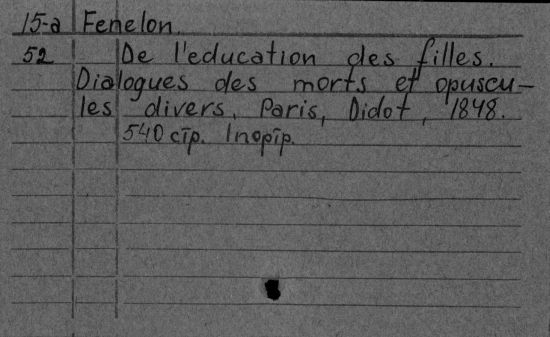 15-a Fenelon.
52 De l'education des filles.
Dialogues des morts et opuscu-
les divers. Paris, Didot, 1848.
540 cїp. Iнopїp.